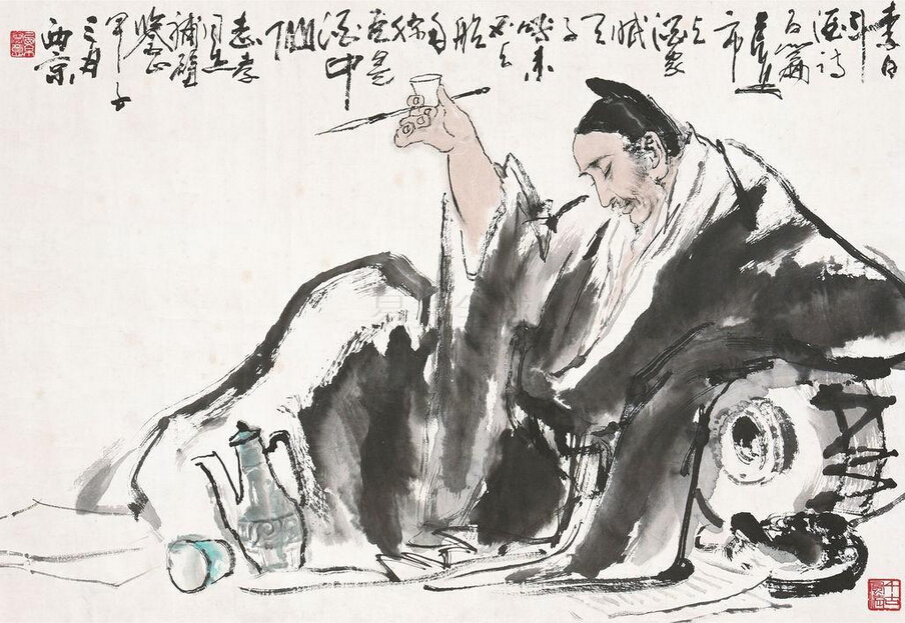 李白
斗
酒诗
百篇
长安
市
上
酒家
眠
天
子
呼来
不上
船
自
称
臣是
酒中
仙
志孝
同志
补壁
甲子
三月
西京